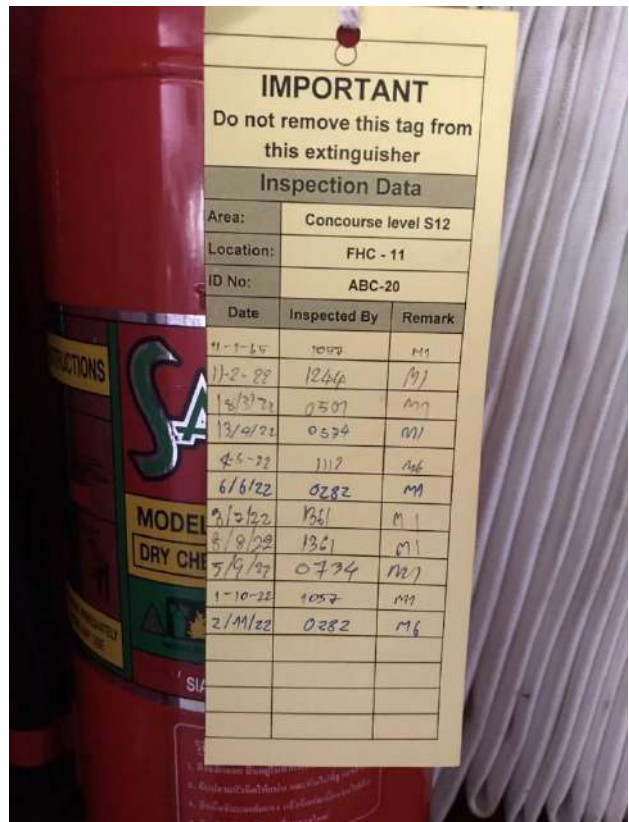 IMPORTANT
Do not remove this tag from
this extinguisher
Inspection Data
Area: Concourse level S12
Location: FHC - 11
ID No: ABC-20
Date Inspected By Remark
11-1-65 1057 M1
11-2-22 1244 M1
18/3/22 0501 M1
13/4/22 0574 M1
4-5-22 1112 M6
6/6/22 0282 M1
8/7/22 1361 M1
8/8/22 1361 M1
5/9/22 0734 M1
1-10-22 1057 M1
2/11/22 0282 M6
UCTIONS
SA
MODEL
DRY CHE
SIA